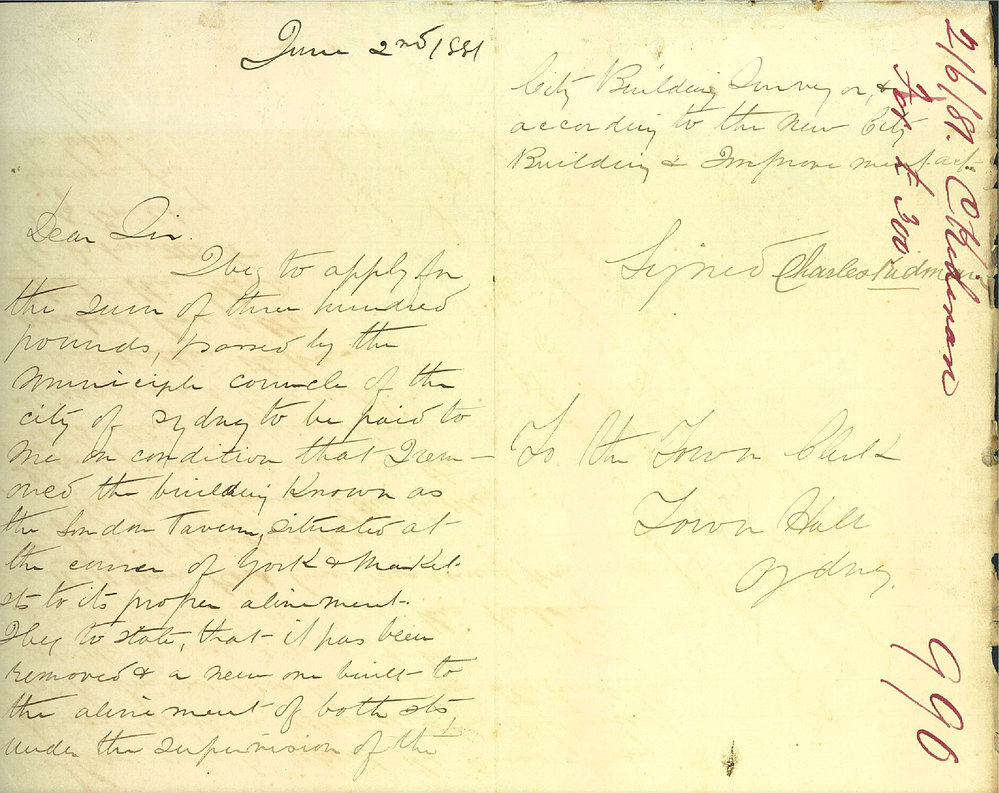 June 2nd 1881
Dear Sir.
I beg to apply for
the sum of three hundred
pounds, passed by the
Municiple councle of the
city of Sydney to be paid to
me on condition that I rem-
oved the building known as
the London Tavern, situated at
the corner of York & Market
sts to its proper alinement.
I beg to state, that it has been
removed & a new one built to
the alinement of both sts,
under the supervision of the
City Building Surveyor, &
according to the New City
Building & Improvement act.
Signed Charles Rudman
To the Town Clerk
Town Hall
Sydney.
2/6/81. C Rudman
for £300
996